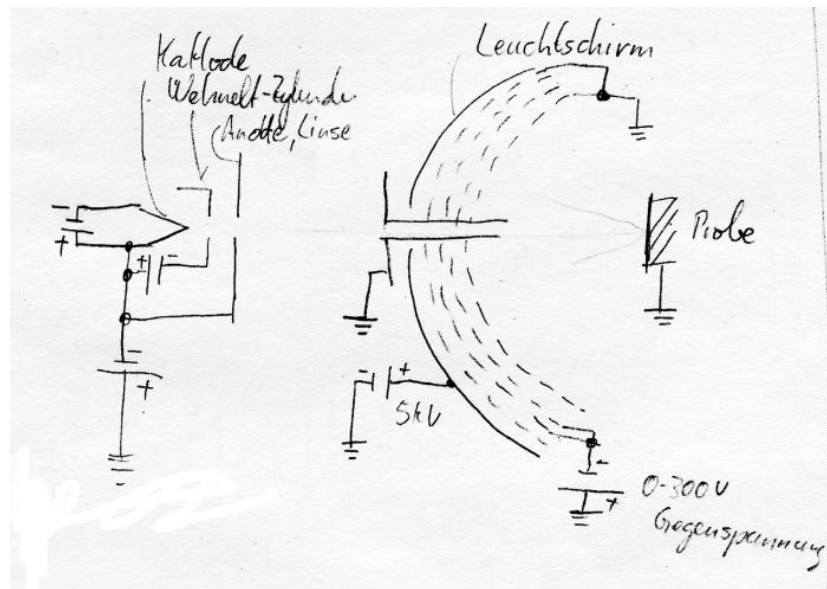 Kathode
Wehnelt-Zylinder
Anode, Linse
Leuchtschirm
-
+
+ -
-
+
Probe
- +
5kV
-
+
0-300V
Gegenspannung